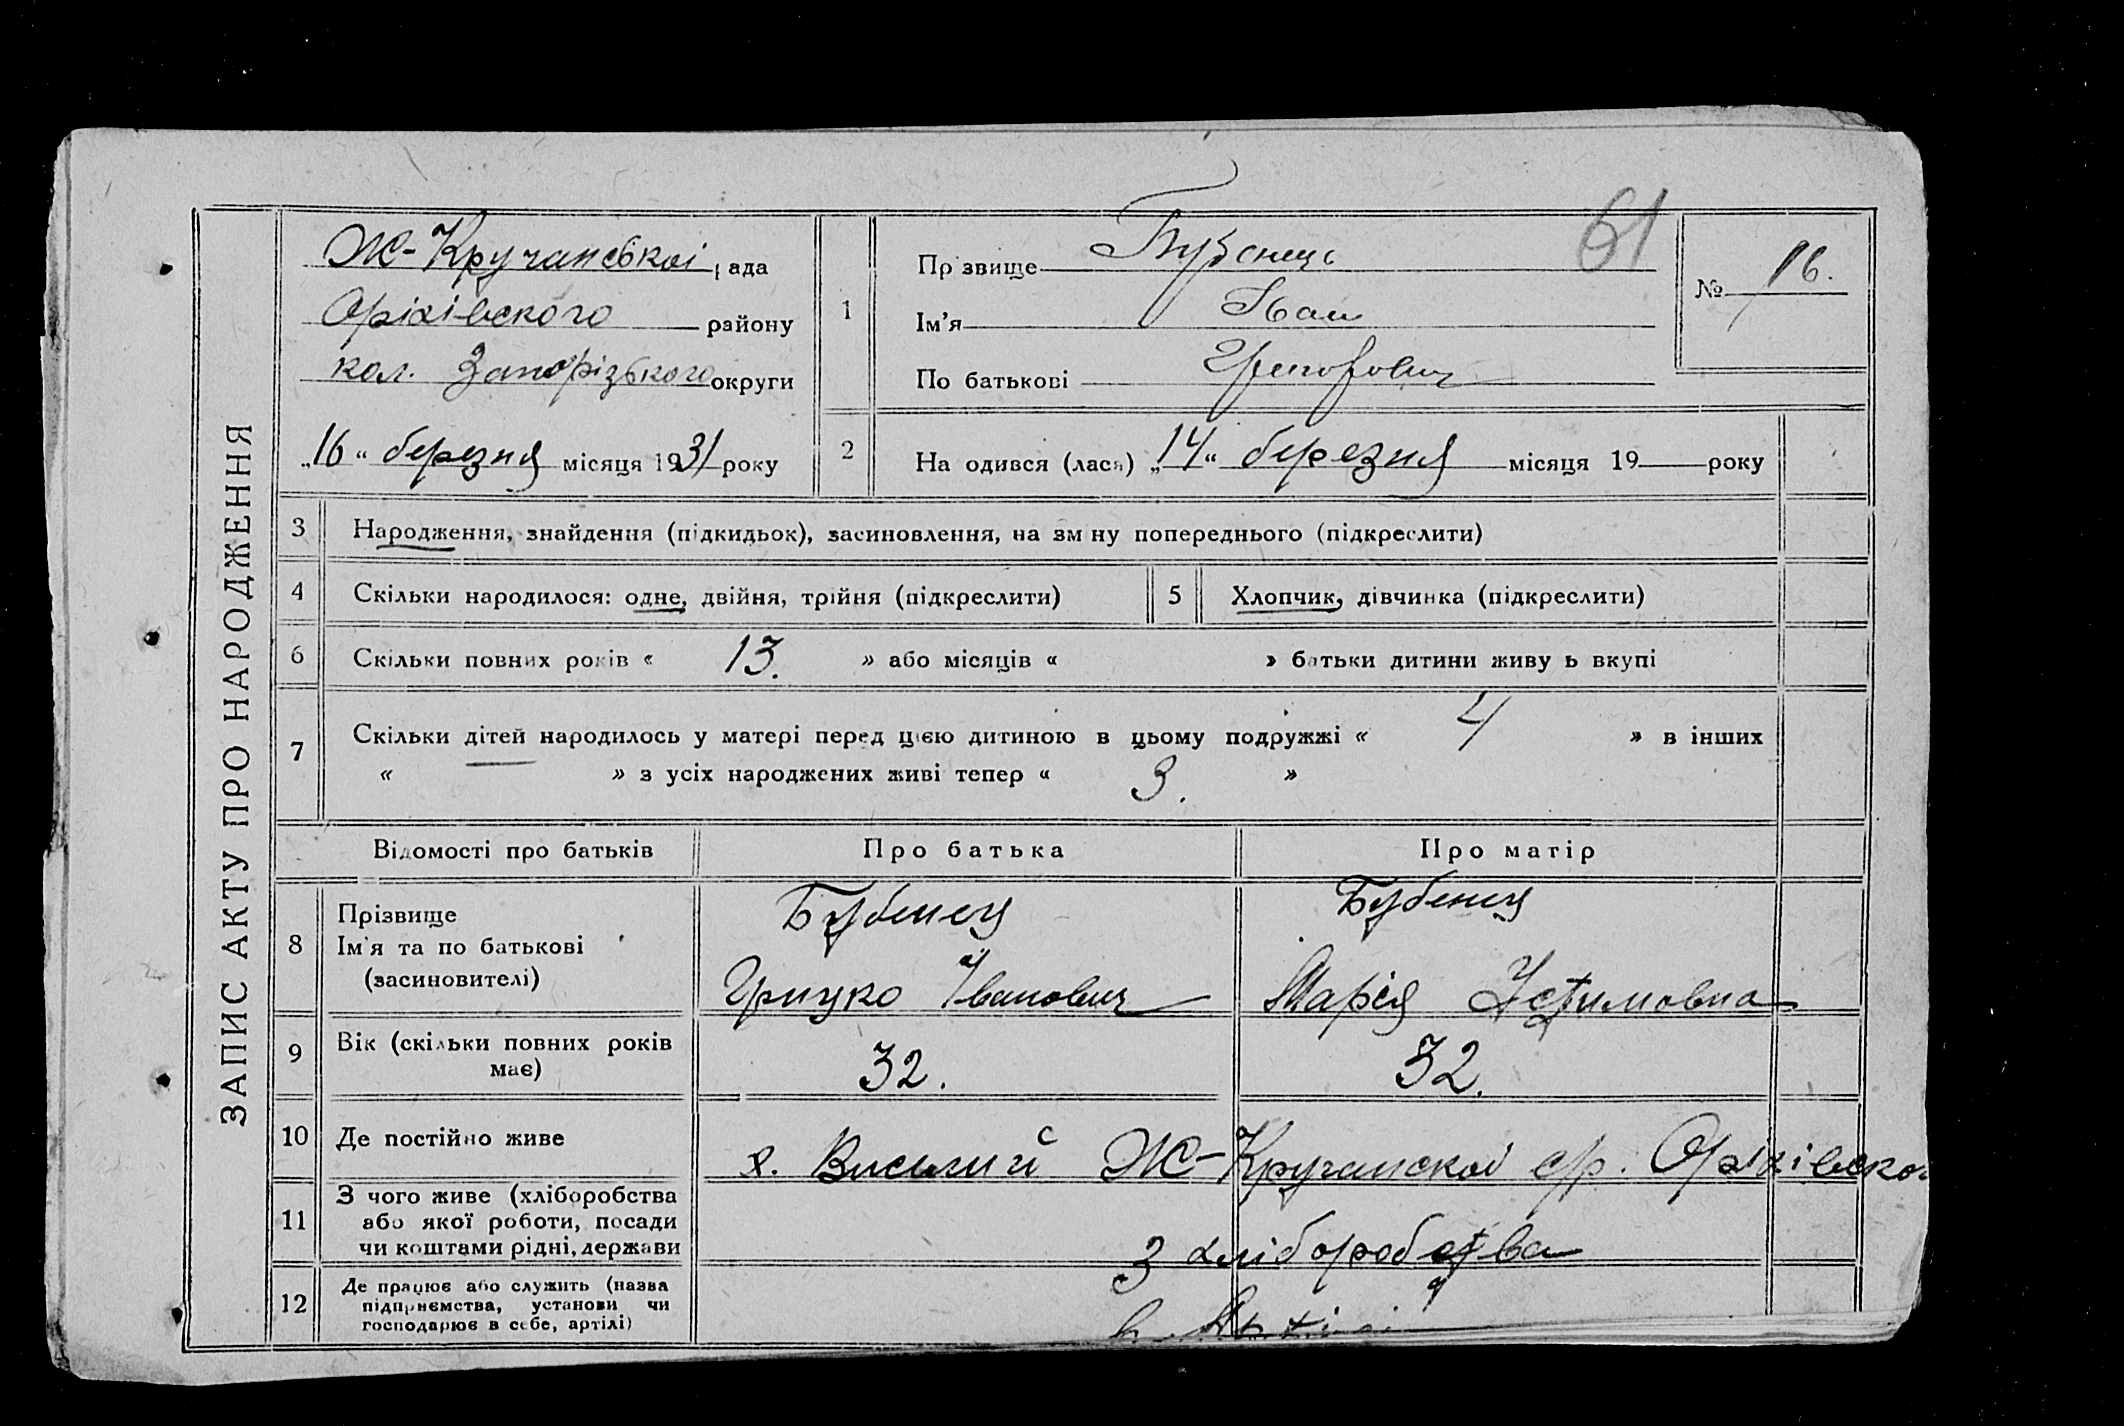 ЗАПИС АКТУ ПРО НАРОДЖЕННЯ
Ж-Кручанської рада
Оріхівського району
кол. Запорізького округи
„16“ березня місяця 1931 року
1
Прізвище Бубенець
Ім'я Іван
По батькові Григорович
61
№ 16.
2
На одився (лася) „14“ березня місяця 19 року
3 Народження, знайдення (підкидьок), засиновлення, на зм ну попереднього (підкреслити)
4 Скільки народилося: одне, двійня, трійня (підкреслити)
5 Хлопчик, дівчинка (підкреслити)
6 Скільки повних років « 13. » або місяців « » батьки дитини живу ь вкупі
7 Скільки дітей народилось у матері перед цією дитиною в цьому подружжі « 4 » в інших
« » з усіх народжених живі тепер « 3. »
Відомості про батьків Про батька Про матір
8 Прізвище
Ім'я та по батькові
(засиновителі)
Бубенец
Грицко Іванович
Бубенец
Марія Устимовна
9 Вік (скільки повних років
має)
32. 32.
10 Де постійно живе х. Ж-Кручанскої с/р. Оріхівско
11 З чого живе (хліборобства
або якої роботи, посади
чи коштами рідні, держави
З хліборобства
12 Де працює або служить (назва
підприємства, установи чи
господарює в себе, артілі)
в